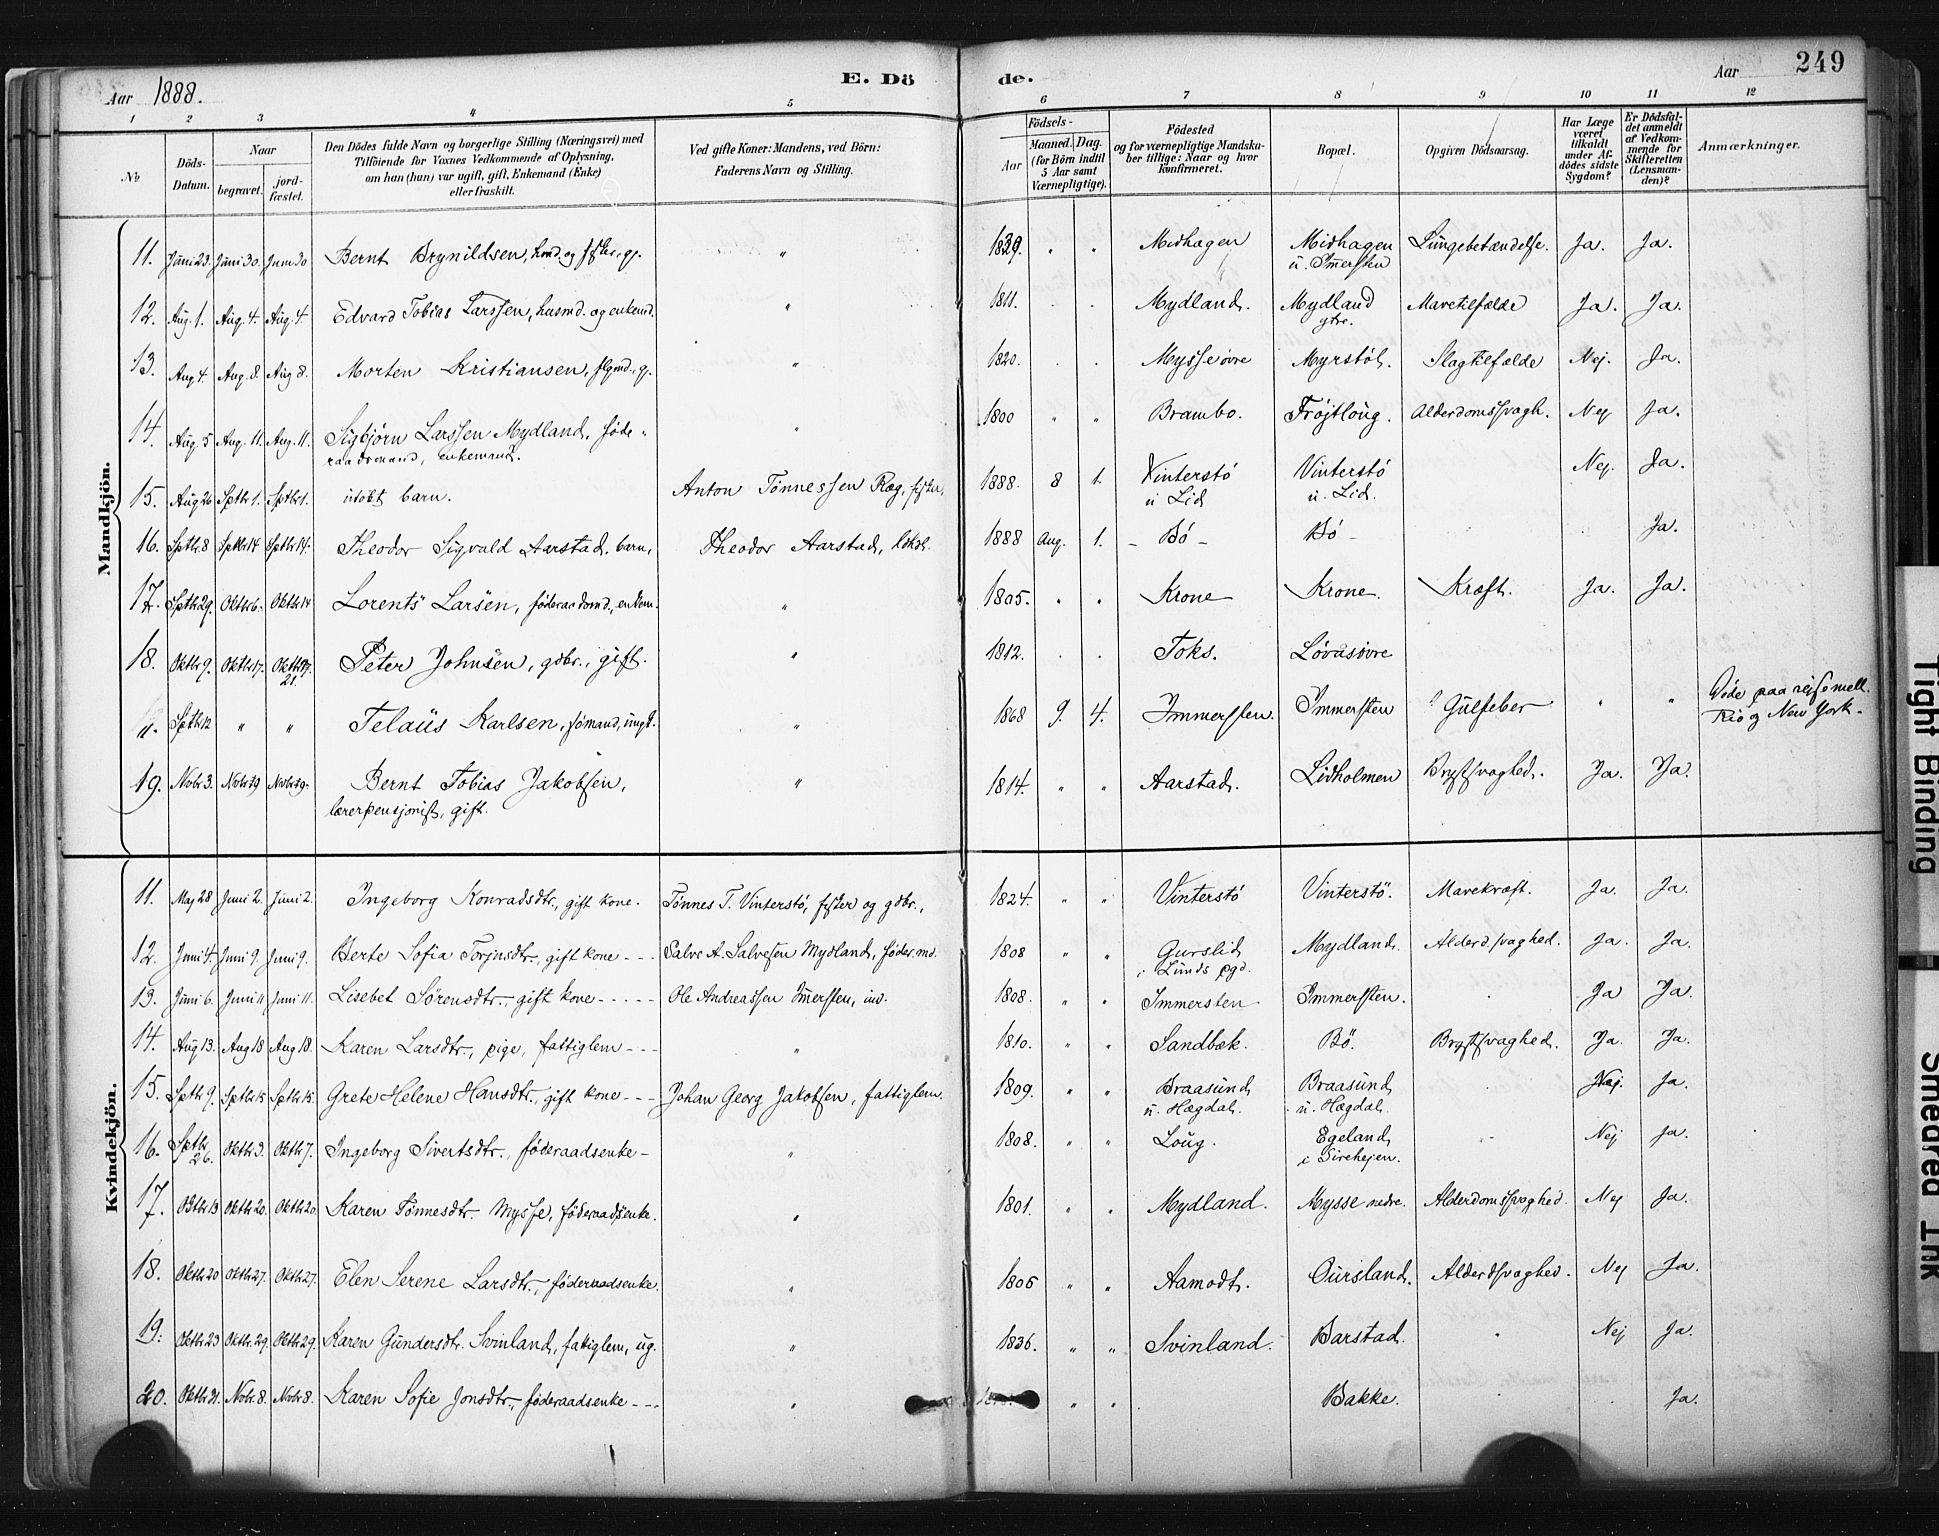 Aar 1888.
E. Dö
de.
Aar
249
1 2 3 4 5 6 7 8 9 10 11 12
No
Döds-Datum.
Naar
begravet.
jord-fæstet.
Den Dödes fulde Navn og borgerlige Stilling (Næringsvei) med
Tilföiende for Voxnes Vedkommende af Oplysning,
om han (hun) var ugift, gift, Enkemand (Enke)
eller fraskilt.
Ved gifte Koner: Mandens, ved Börn:
Faderens Navn og Stilling.
Födsels-
Aar
Maaned. Dag.
(for Börn indtil
5 Aar samt
Værnepligtige).
Födested
og for værnepligtige Mandska-
ber tillige: Naar og hvor
konfirmeret.
Bopæl.
Opgiven Dödsaarsag.
Har Læge
været
tilkaldt
under Af-
dödes sidste
Sygdom?
Er Dödsfal-
det anmeldt
af Vedkom-
mende for
Skifteretten
(Lensman-
den)?
Anmærkninger.
Mandkjön.
11. Juni 23. Juni 30. Juni 30 Bernt Brynildsen, husmd. og fister, g. " 1829. " " Midhagen Midhagen Lungebetændelse. Ja. Ja.
u. Immersten
12. Aug. 1. Aug. 4. Aug. 4. Edvard Tobias Larssen, husmd. og enkemd. " 1811. . . Mydland. Mydland Mavetilfælde Ja. Ja.
ytre.
13. Aug 4. Aug. 8. Aug 8. Morten Kristiansen, flgmd., g. " 1820. . . Mysse övre Myrstöl. Slagtilfælde Nej. Ja.
14. Aug. 5 Aug. 11. Aug. 11. Sigbjörn Larssen Mydland, föde- " 1800 " " Brambo. Tröjtloug. Alderdomssvagh. Nej Ja.
raadsmand, enkemand.
15. Aug 26 Sptb 1. Sptb 1. udöbt barn. Anton Tönnessen Ræg, fister. 1888. 8 1. Vinterstö Vinterstö Nej. Ja.
u Lid u. Lid.
16. Sptb. 8 Sptb 14 Sptb 14. Theodor Sigvald Aarstad, barn, Theodor Aarstad, 1888 Aug. 1. – Bö – Bö – Ja.
17. Sptb 29. Oktb 6. Oktb 14 Lorents Larsen, föderaadsmd., enkem. " 1805. " " Krone Krone. Kræft. Ja. Ja.
18. Oktb 9. Oktb 17. Oktb Peter Johnsen, gdbr., gift. " 1812. . . Toks. Lövaasövre
21.
". Sptb 12 " " Telaus Karlsen, sömand, ungk. " 1868 9. 4. Immersten. Immersten ? Gulfeber " " Döde paa rejse mell.
Rio og New York.
19. Novb 3. Novb 19 Novb 19. Bernt Tobias Jakobsen, " 1814. " " Aarstad. Lidholmen Brystsvaghed. Ja. Ja.
lærerpensjonist, gift.
Kvindekjön.
11. Maj 28 Juni 2. Juni 2. Ingeborg Konradsdtr., gift kone. Tönnes T. Vinterstö, fister og gdbr., 1824. " " Vinterstö Vinterstö. Mavekræft. Ja. Ja.
12. Juni 4. Juni 9. Juni 9. Berte Sofia Torjusdtr., gift kone - - - Salve A. Salvesen Mydland, föder.md. 1808 " " Gurslid Mydland. Alderd.svaghed. Ja. Ja.
i Lunds pgd.
13. Juni 6. Juni 11 Juni 11. Lisebet Sörensdtr., gift kone - - - - - Ole Andreassen Immersten, inv. 1808. " " Immersten Immersten. . Ja Ja.
14. Aug 13. Aug 18 Aug 18. Karen Larsdtr., pige, fattiglem - - - " 1810. " " Sandbæk. Bö. Brystsvaghed. Ja. Ja.
15. Sptb 9. Sptb 15 Sptb 15. Grete Helene Hansdtr., gift kone - - - Johan Georg Jakobsen, fattiglem. 1809. " " Braasund Braasund . Nej. Ja.
u. Hægdal. u. Hægdal.
16. Sptb 26. Oktb 3. Oktb 7. Ingeborg Sivertsdtr., föderaadsenke - " 1808. " " Loug. Egeland Nej Ja.
i Sirehejen.
17. Oktb 13 Oktb 20. Oktb 20. Karen Tönnesdtr. Mysse, föderaadsenke. " 1801. " " Mydland. Mysse nedre. Alderdomssvaghed. Nej Ja.
18. Oktb 20 Oktb 27. Oktb 27. Elen Serene Larsdtr., föderaadsenke. " 1806 " " Aamodt. Oursland. Alderdsvaghed. Nej Ja.
19. Oktb 23 Oktb 29. Oktb 29. Karen Gundersdtr. Svinland, fattiglem, ug. " 1836. " " Svinland. Barstad. " Nej Ja.
20. Oktb 31. Novb. 8. Novb 8. Karen Sofie Jonsdtr., föderaadsenke - - - " " " . Bakke. . . Ja.
Tight Binding
Smeared Ink